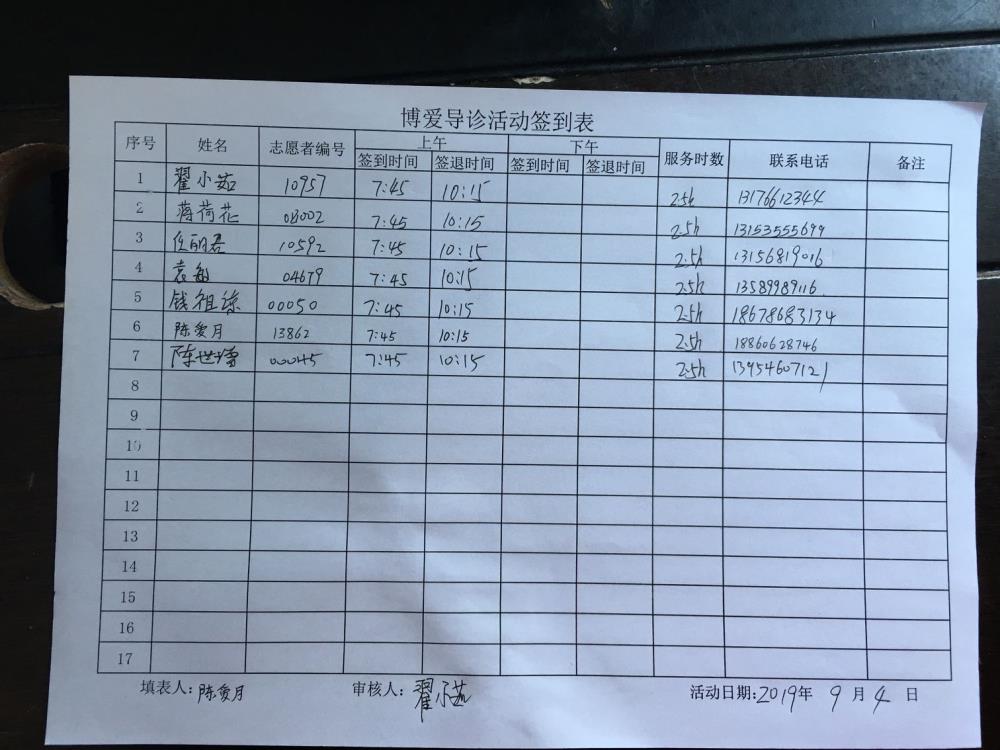 博爱导诊活动签到表
序号 姓名 志愿者编号 上午 下午 服务时数 联系电话 备注
签到时间 签退时间 签到时间 签退时间
1 翟小茹 10957 7:45 10:15 2.5h 13176612344
2 蒋荷花 03002 7:45 10:15 2.5h 13153555699
3 任丽君 10592 7:45 10:15 2.5h 13156819016
4 袁敏 04679 7:45 10:15 2.5h 13589989116
5 钱祖 00050 7:45 10:15 2.5h 18678683134
6 陈爱月 13862 7:45 10:15 2.5h 18860628746
7 陈世 00045 7:45 10:15 2.5h 13954607121
8
9
10
11
12
13
14
15
16
17
填表人:陈爱月 审核人:翟小茹 活动日期:2019年 9 月 4 日